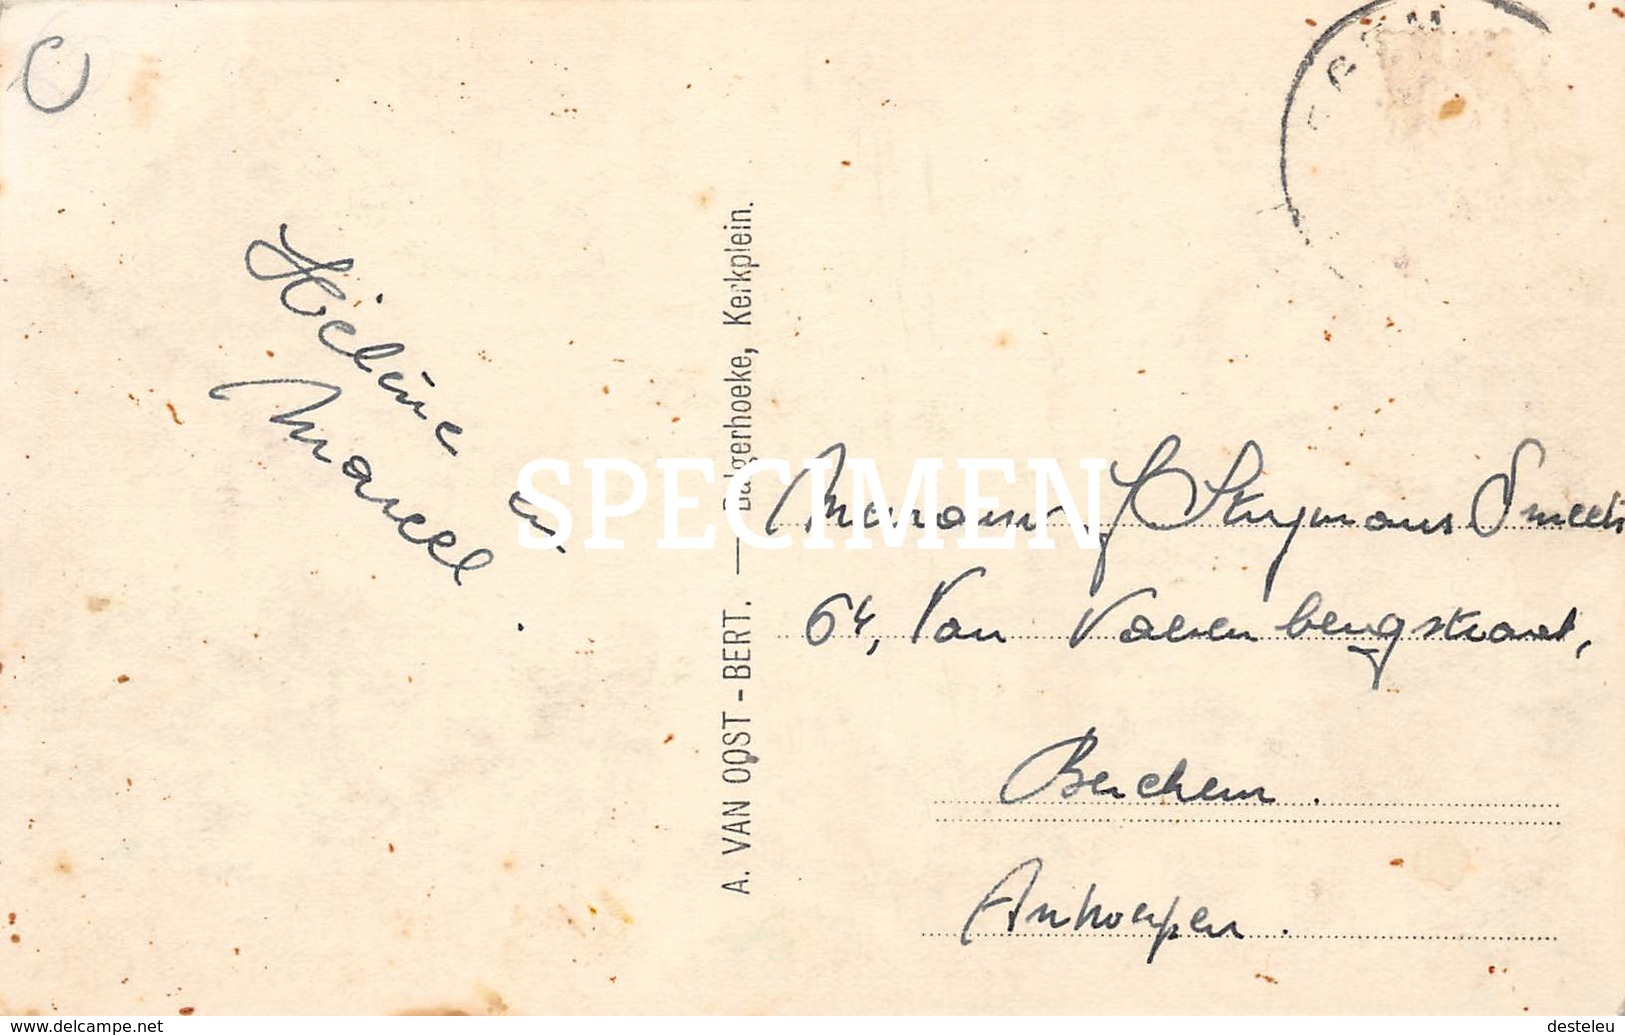 Hélène en
Marcel.
A. VAN OOST-BERT. — Balgerhoeke, Kerkplein.
SPECIMEN
Stuymans Smeets
64, Van
Berchem.
Antwerpen.
www.delcampe.net
desteleu